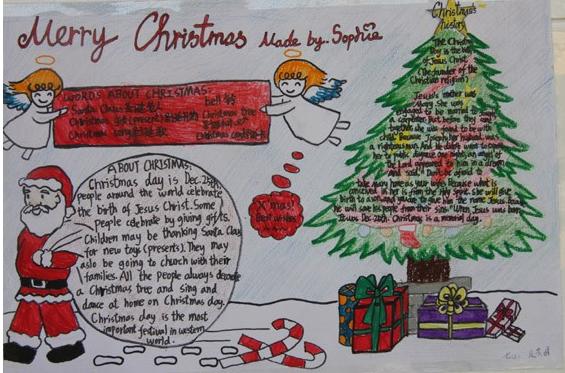 Merry Christmas Made by.. Sophie
WORDS ABOUT CHRISTMAS:
Santa Claus 圣诞老人
Christmas gift (present)
Christmas song 圣诞歌
bell 铃
Christmas tree
Christmas card
X'mas!
Best wishes
ABOUT CHRISTMAS:
Christmas day is Dec. 25th,
people around the world celebrate
the birth of Jesus Christ. Some
People celebrate by giving gifts.
Children may be thanking Santa Claus
for new toys (presents). They may
aslo be going to church with their
families. All the people always decorate
a Christmas tree and sing and
dance at home on Christmas day.
Christmas day is the most
important festival in western
world.
Christmas's
history
The Christmas
Day is the birth
of Jesus Christ
(the founder of the
Christian religion)
Jesus's mother was
Mary. She was
to be married to
a carpenter. But before they
together she was found to be with
child. Because Joseph her husband was
a righteous man. And he didn't want to expose
her to public disgrace
appeared to him in a dream
and said, "Don't be afraid to
take Mary home as your wife. Because what is
conceived in her is from the Holy Spirit. She will give
birth to a son, and you're to give him the name Jesus, because
he will save his people from their sins." When Jesus was born
Dec. 25th. Christmas is a